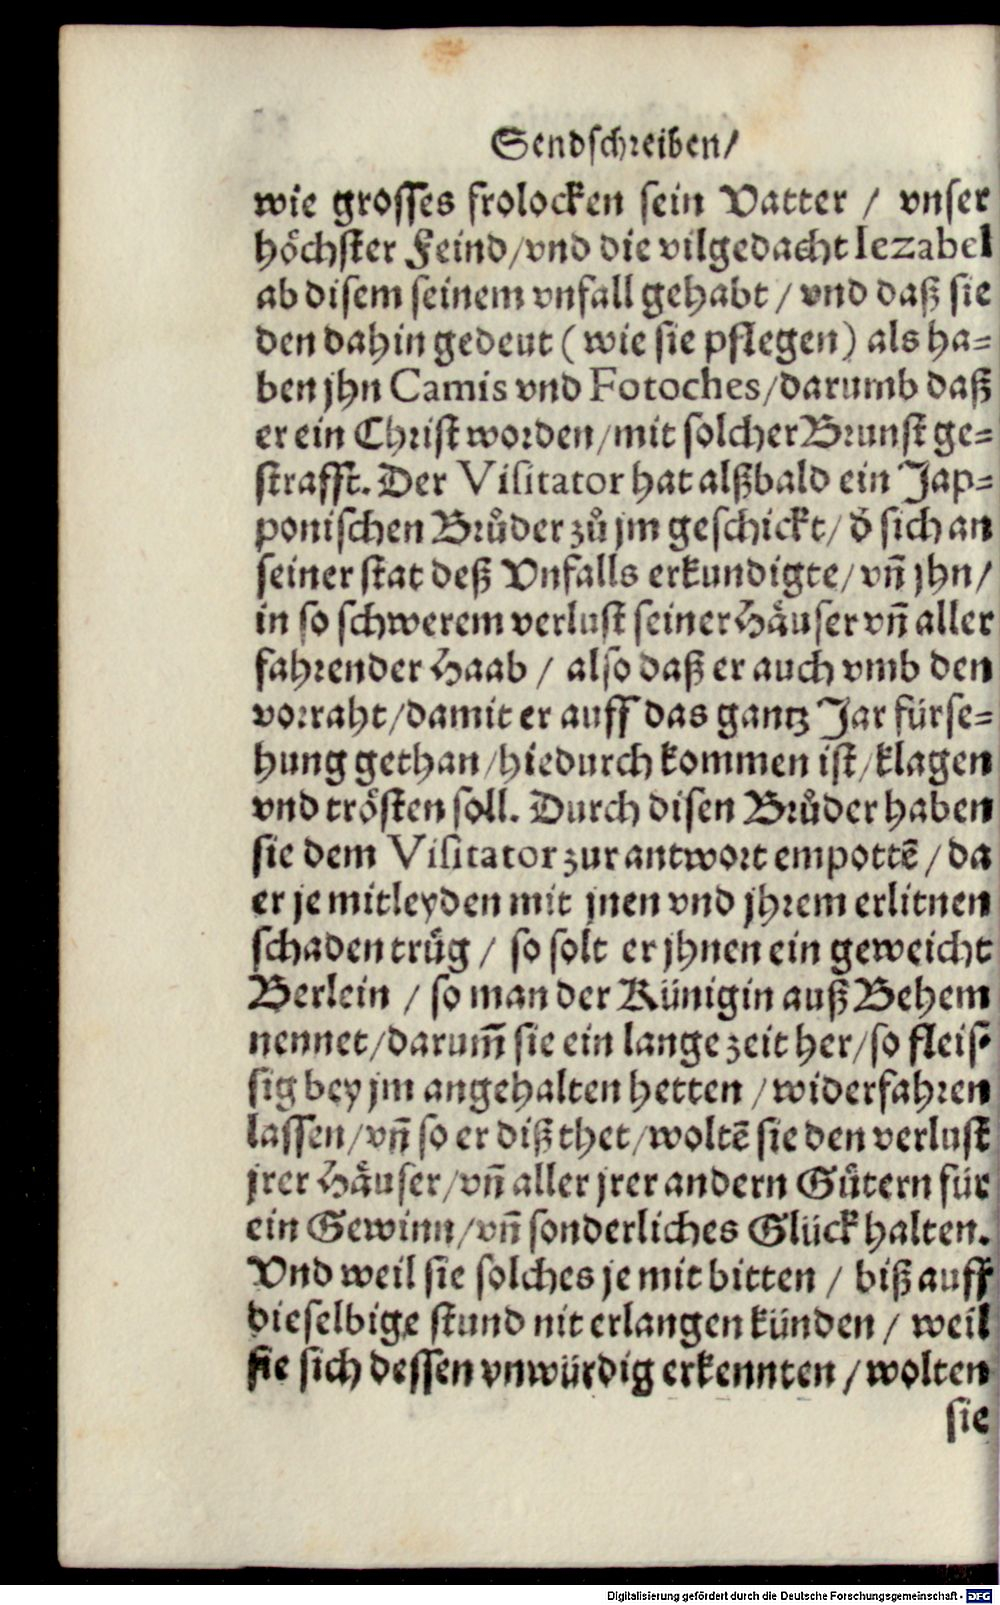 Sendschreiben/
wie grosses frolocken sein Vatter / vnser
höchster Feind/vnd die vilgedacht Iezabel
ab disem seinem vnfall gehabt / vnd daß sie
den dahin gedeut (wie sie pflegen) als ha-
ben jhn Camis vnd Fotoches/darumb daß
er ein Christ worden/mit solcher Brunst ge-
strafft. Der Visitator hat alßbald ein Jap-
ponischen Brůder zů jm geschickt/ d̄ sich an
seiner stat deß Vnfalls erkundigte/vn̄ jhn/
in so schwerem verlust seiner Häuser vn̄ aller
fahrender Haab / also daß er auch vmb den
vorraht/damit er auff das gantz Jar fürse-
hung gethan/hiedurch kommen ist/klagen
vnd trösten soll. Durch disen Brůder haben
sie dem Visitator zur antwort empottē/da
er je mitleyden mit jnen vnd jhrem erlitnen
schaden trüg / so solt er jhnen ein geweicht
Berlein / so man der Künigin auß Behem
nennet/darum̄ sie ein lange zeit her/so fleis-
sig bey jm angehalten hetten /widerfahren
lassen/vn̄ so er diß thet/woltē sie den verlust
jrer Häuser/vn̄ aller jrer andern Gütern für
ein Gewinn/vn̄ sonderliches Glück halten.
Vnd weil sie solches je mit bitten / biß auff
dieselbige stund nit erlangen künden / weil
sie sich dessen vnwürdig erkennten /wolten
sie
Digitalisierung gefördert durch die Deutsche Forschungsgemeinschaft - DFG